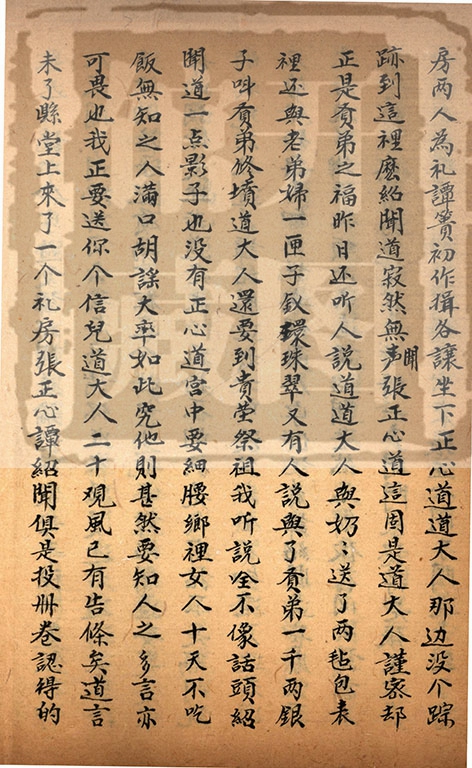 房两人為礼譚簣初作揖各讓坐下正心道道大人那边没个踪
跡到這裡麽紹聞道寂然無声聞張正心道這固是道大人謹宻却
正是賁弟之福昨日还听人説道道大人與奶:送了两毡包表
裡还與老弟婦一匣子釵環珠翠又有人説與了賁弟一千两銀
子呌賁弟修墳道大人還要到貴塋祭祖我听説全不像話頭紹
聞道一点影子也没有正心道宫中要細腰鄉裡女人十天不吃
飯無知之人滿口胡謡大率如此究他則甚然要知人之多言亦
可畏也我正要送你个信兒道大人二十覌風已有告條矣道言
未了縣堂上來了一个礼房張正心譚紹聞俱是投册卷認得的